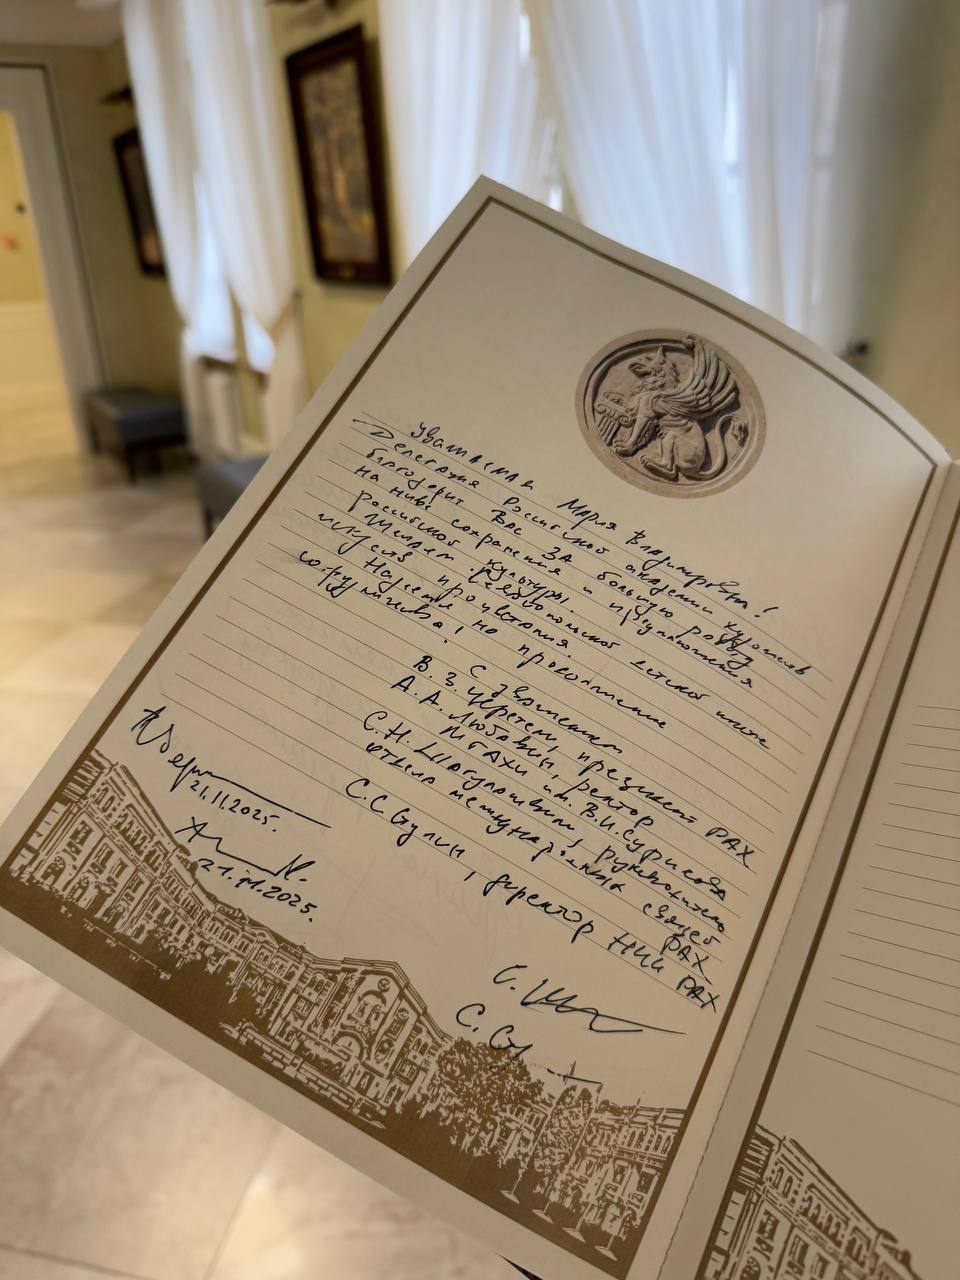 Уважаемая Мария Владимировна!
Делегация Российской академии художеств
благодарит Вас за большую работу
на ниве сохранения и приумножения
Российской культуры.
Желаем Севастопольской детской школе
искусств процветания.
Надеемся на продолжение
сотрудничества!
С уважением
В. З. Церетели, президент РАХ
А. А. Любавин, ректор
МГАХИ им. В.И. Сурикова
С. Н. Шагулашвили, руководитель
отдела международных связей
РАХ
С. С. Ступин, директор НИИ РАХ
21.11.2025.
21.11.2025.
С.
С.